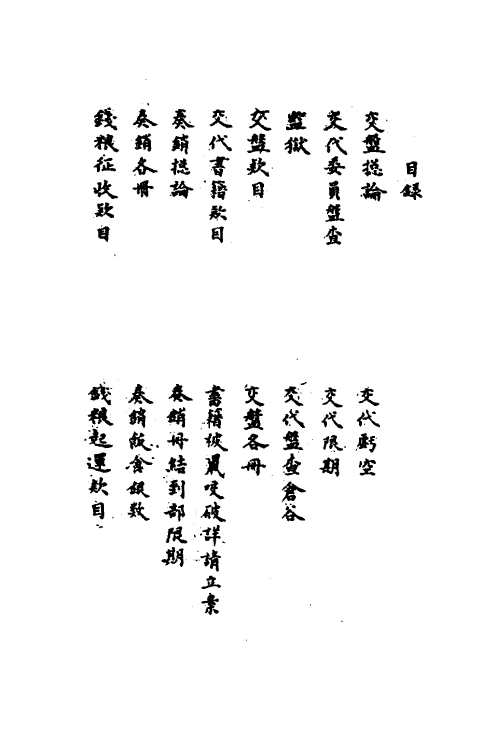 目録
交盤捴論
交代虧空
交代委員盤查
交代限期
監獄
交代盤查倉谷
交盤欵目
交盤各冊
交代書籍欵目
書籍被鼠咬破詳請立案
奏銷捴論
奏銷冊結到部限期
奏銷各冊
奏銷飯食銀数
錢粮征收欵目
錢粮起運欵目